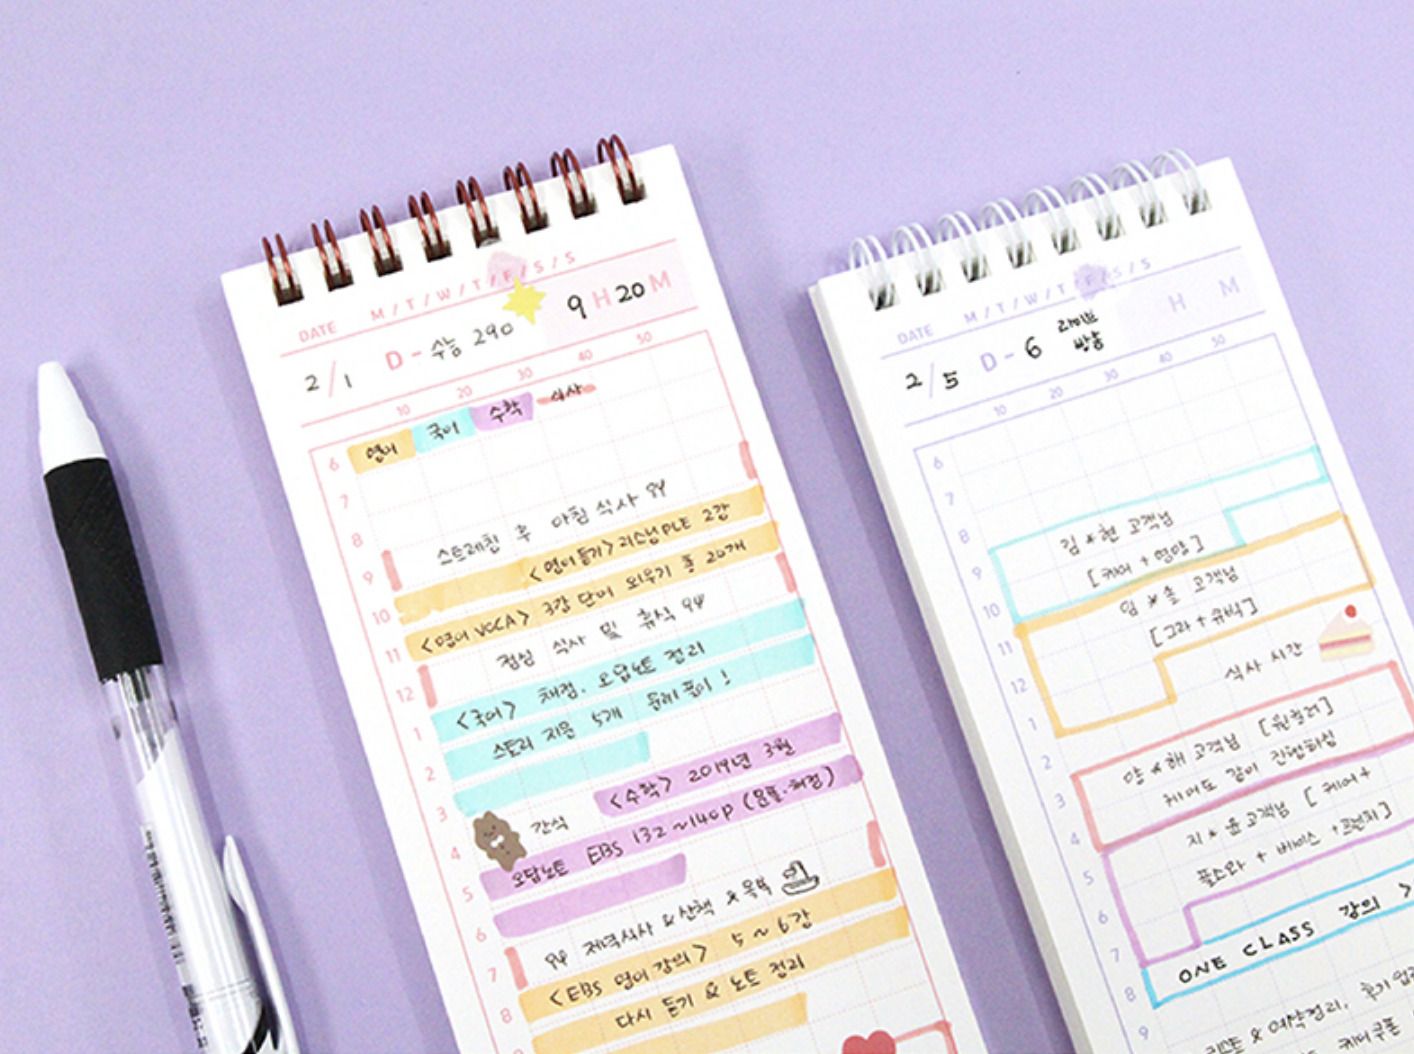 DATE M / T / W / T / F / S / S
2 / 1 D - 수능 290 9 H 20 M
10 20 30 40 50
6 영어 국어 수학 식사
7
8 스트레칭 후 아침 식사
9 <영어 듣기> 리스닝 PLE 2강
10 <영어 VOCA> 3강 단어 외우기 총 20개
11 점심 식사 및 휴식
12 <국어> 채점, 오답노트 정리
1 스토리 지문 5개 문제 풀이!
2
3 <수학> 2019년 3월
간식
4 오답노트 EBS 132~140P (문풀·채점)
5
6 저녁식사 & 산책 & 목욕
7 <EBS 영어 강의> 5~6강
8 다시 듣기 & 노트 정리
DATE M / T / W / T / F / S / S
2 / 5 D - 6 라이브 방송 H M
10 20 30 40 50
6
7
8 김*현 고객님
9 [케어 + 영양]
10 임*솔 고객님
11 [그라 + 큐빅]
12 식사 시간
1
2 양*해 고객님 [원컬러]
3 케어도 같이 진행하심
4 지*윤 고객님 [케어+
5 풀소와 + 베이스 + 프렌치]
6
7 ONE CLASS 강의 >
8
9 & 예약정리,